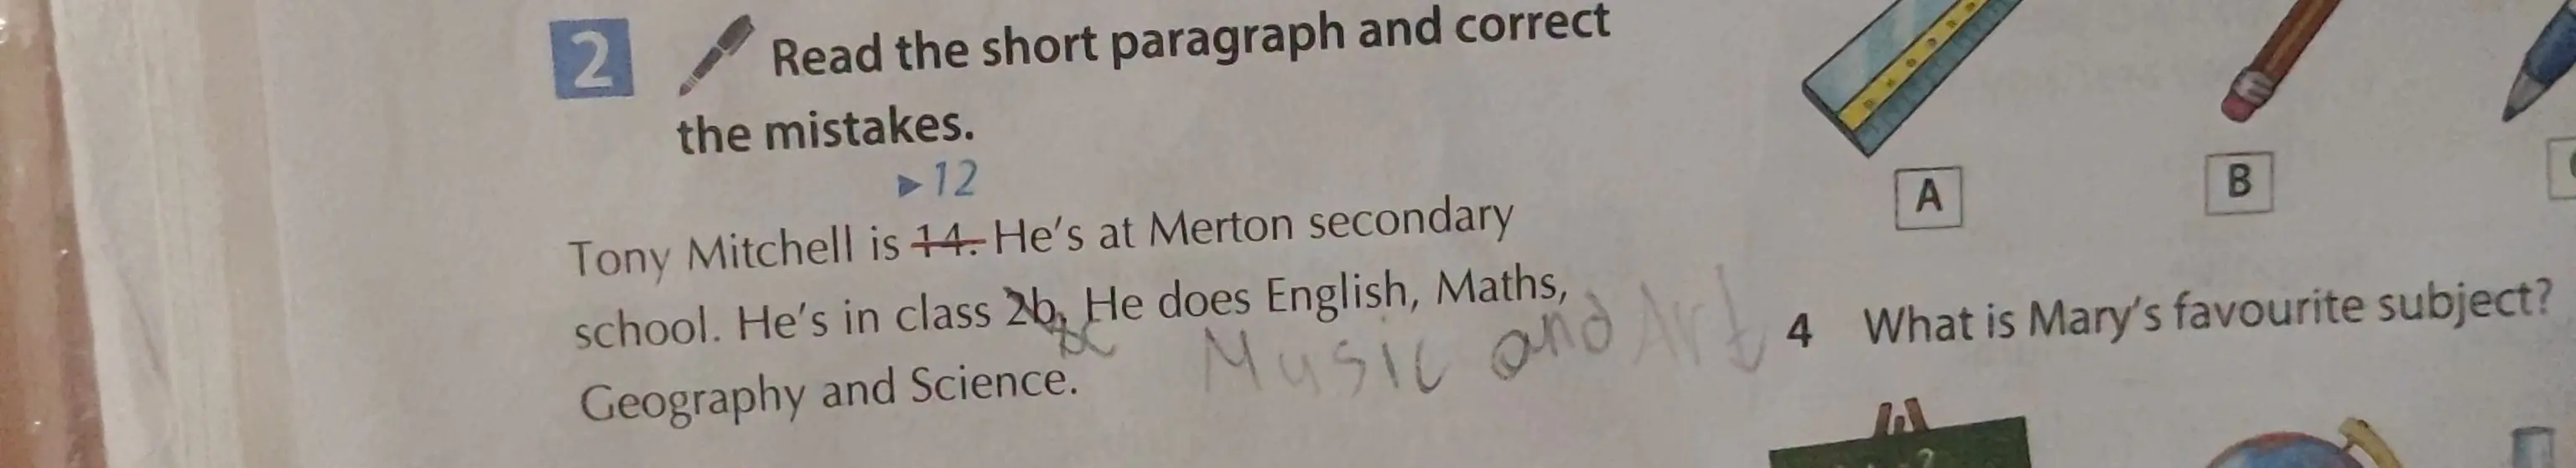 2 Read the short paragraph and correct
the mistakes.
▶12
Tony Mitchell is 14. He's at Merton secondary
school. He's in class 2b. He does English, Maths,
Music and Art
Geography and Science.
A
B
4 What is Mary's favourite subject?